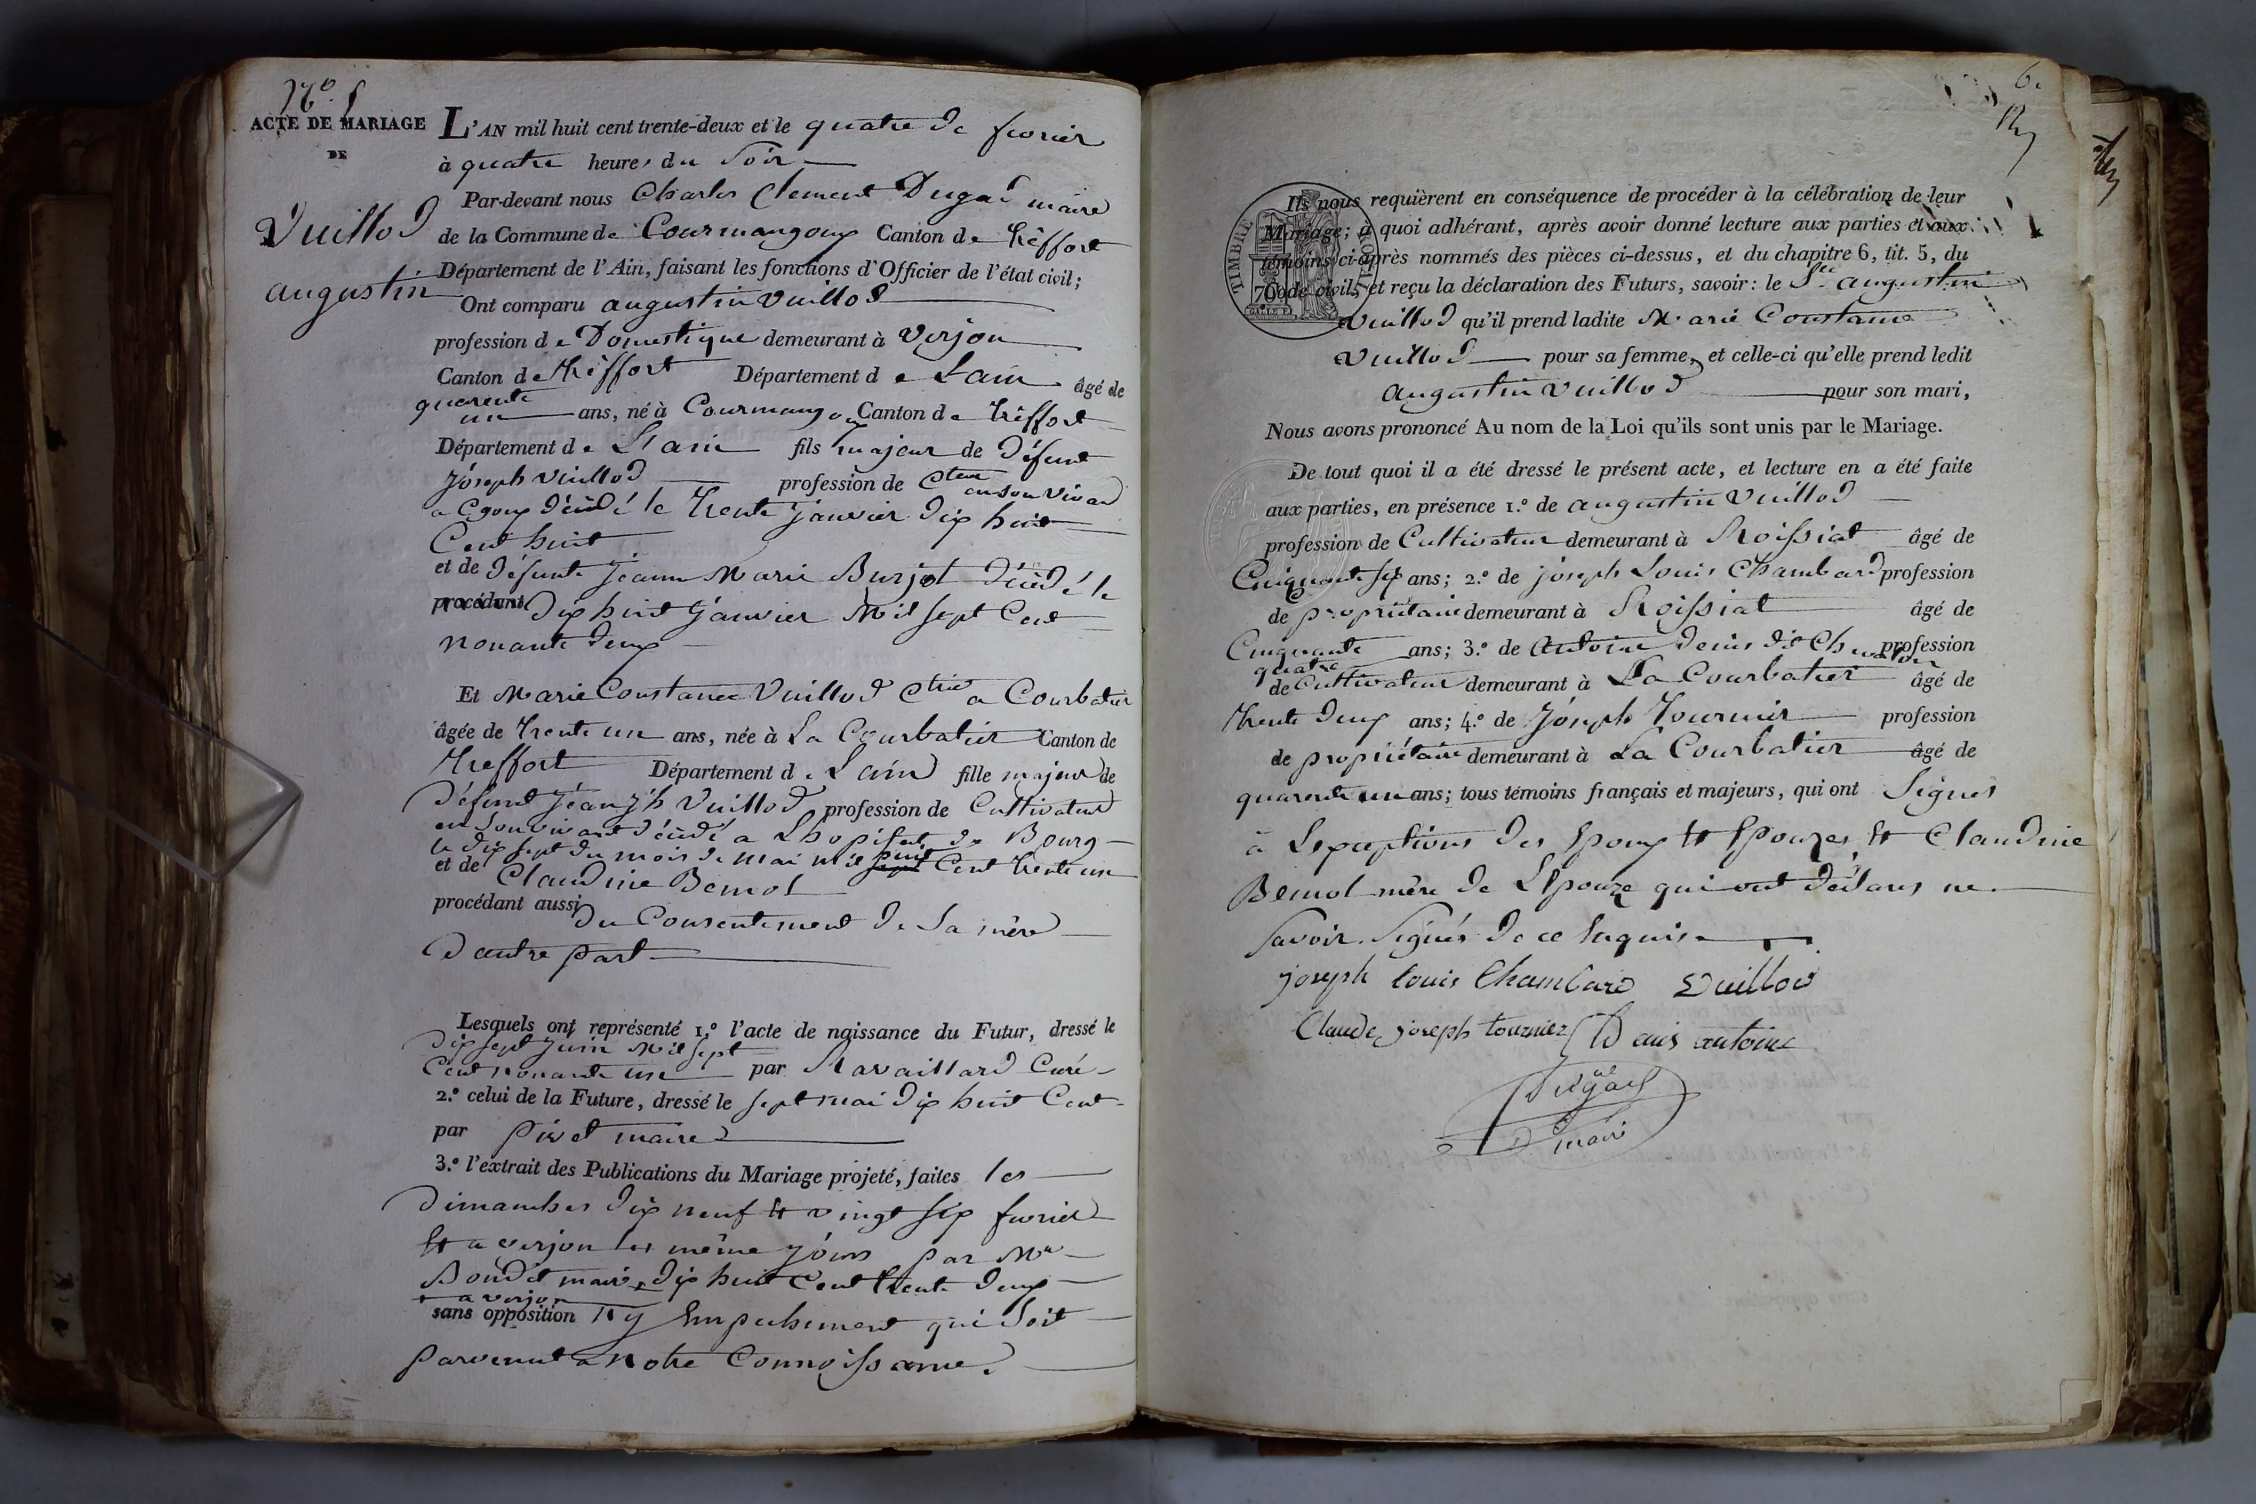 N.o 5
ACTE DE MARIAGE
DE
Vuillod
augustin
L'AN mil huit cent trente-deux et le quatre de fevrier
à quatre heures du Soir
Par-devant nous Charles Clement Dugad maire
de la Commune de Courmangoux Canton de Tréffort
Département de l'Ain, faisant les fonctions d'Officier de l'état civil;
Ont comparu augustin vuillod
profession de Domestique demeurant à Verjon
Canton de Tréffort Département de Lain âgé de
quarente
un ans, né à Courmangoux Canton de Tréffort
Département de Lain fils majeur de défunt
Jóseph vuillod profession de Cteur en son vivan
a Cgoux décédé le trente janvier dix huit
Cent huit
et de défunte jeanne Marie Burjot décédé le
procédant dix huit janvier Mil sept Cent
nonante deux
Et Marie Constance Vuillod Ctrice a Courbatier
âgée de trente un ans, née à La Courbatier Canton de
Treffort Département de Lain fille majeur de
défunt jean jh Vuillod profession de Cultivateur
en Son vivant décédé a Lhopital de Bourg
le dix sept du mois de mai mil huit Cent trente un
et de Claudine Bemol
procédant aussi du Consentement de Sa mère
D'autre part
Lesquels ont représenté 1.o l'acte de naissance du Futur, dressé le
dix sept juin Mil sept
Cent nonante une par Ravaillard Curé
2.o celui de la Future, dressé le sept mai dix huit Cent
par pivet maire
3.o l'extrait des Publications du Mariage projeté, faites les
dimanches dix neuf et vingt six fevrier
et a verjon les même jóurs par Mr
Bondet maire dix huit Cent trente deux
a verjon
sans opposition Ny Empechement qui Soit
parvenut a notre Connoissance.
6.
Ils nous requièrent en conséquence de procéder à la célébration de leur
Mariage; à quoi adhérant, après avoir donné lecture aux parties et aux
témoins ci-après nommés des pièces ci-dessus, et du chapitre 6, tit. 5, du
Code civil, et reçu la déclaration des Futurs, savoir: le Sr augustin
vuillod qu'il prend ladite Marie Constance
vuillod pour sa femme, et celle-ci qu'elle prend ledit
augustin vuillod pour son mari,
Nous avons prononcé Au nom de la Loi qu'ils sont unis par le Mariage.
TIMBRE ROYAL
70
De tout quoi il a été dressé le présent acte, et lecture en a été faite
aux parties, en présence 1.o de augustin vuillod
profession de Cultivateur demeurant à Roissiat âgé de
Cinquante six ans; 2.o de jóseph Louis Chambard profession
de propriétaire demeurant à Roissiat âgé de
Cinquante ans; 3.o de Antoine denis dit Chevalon profession
quatre
de Cultivateur demeurant à La Courbatier âgé de
trente deux ans; 4.o de Jóseph Tournier profession
de propriétaire demeurant à La Courbatier âgé de
quarente un ans; tous témoins français et majeurs, qui ont Signes
à Lexceptions des Epoux et Epouzes et Claudine
Bemol mère de LEpouze qui ont déclares ne
Savoir Signés de ce Enquise
joseph louis Chambard Vuillod
Claude joseph tournier Denis antoine
Dugad
maire